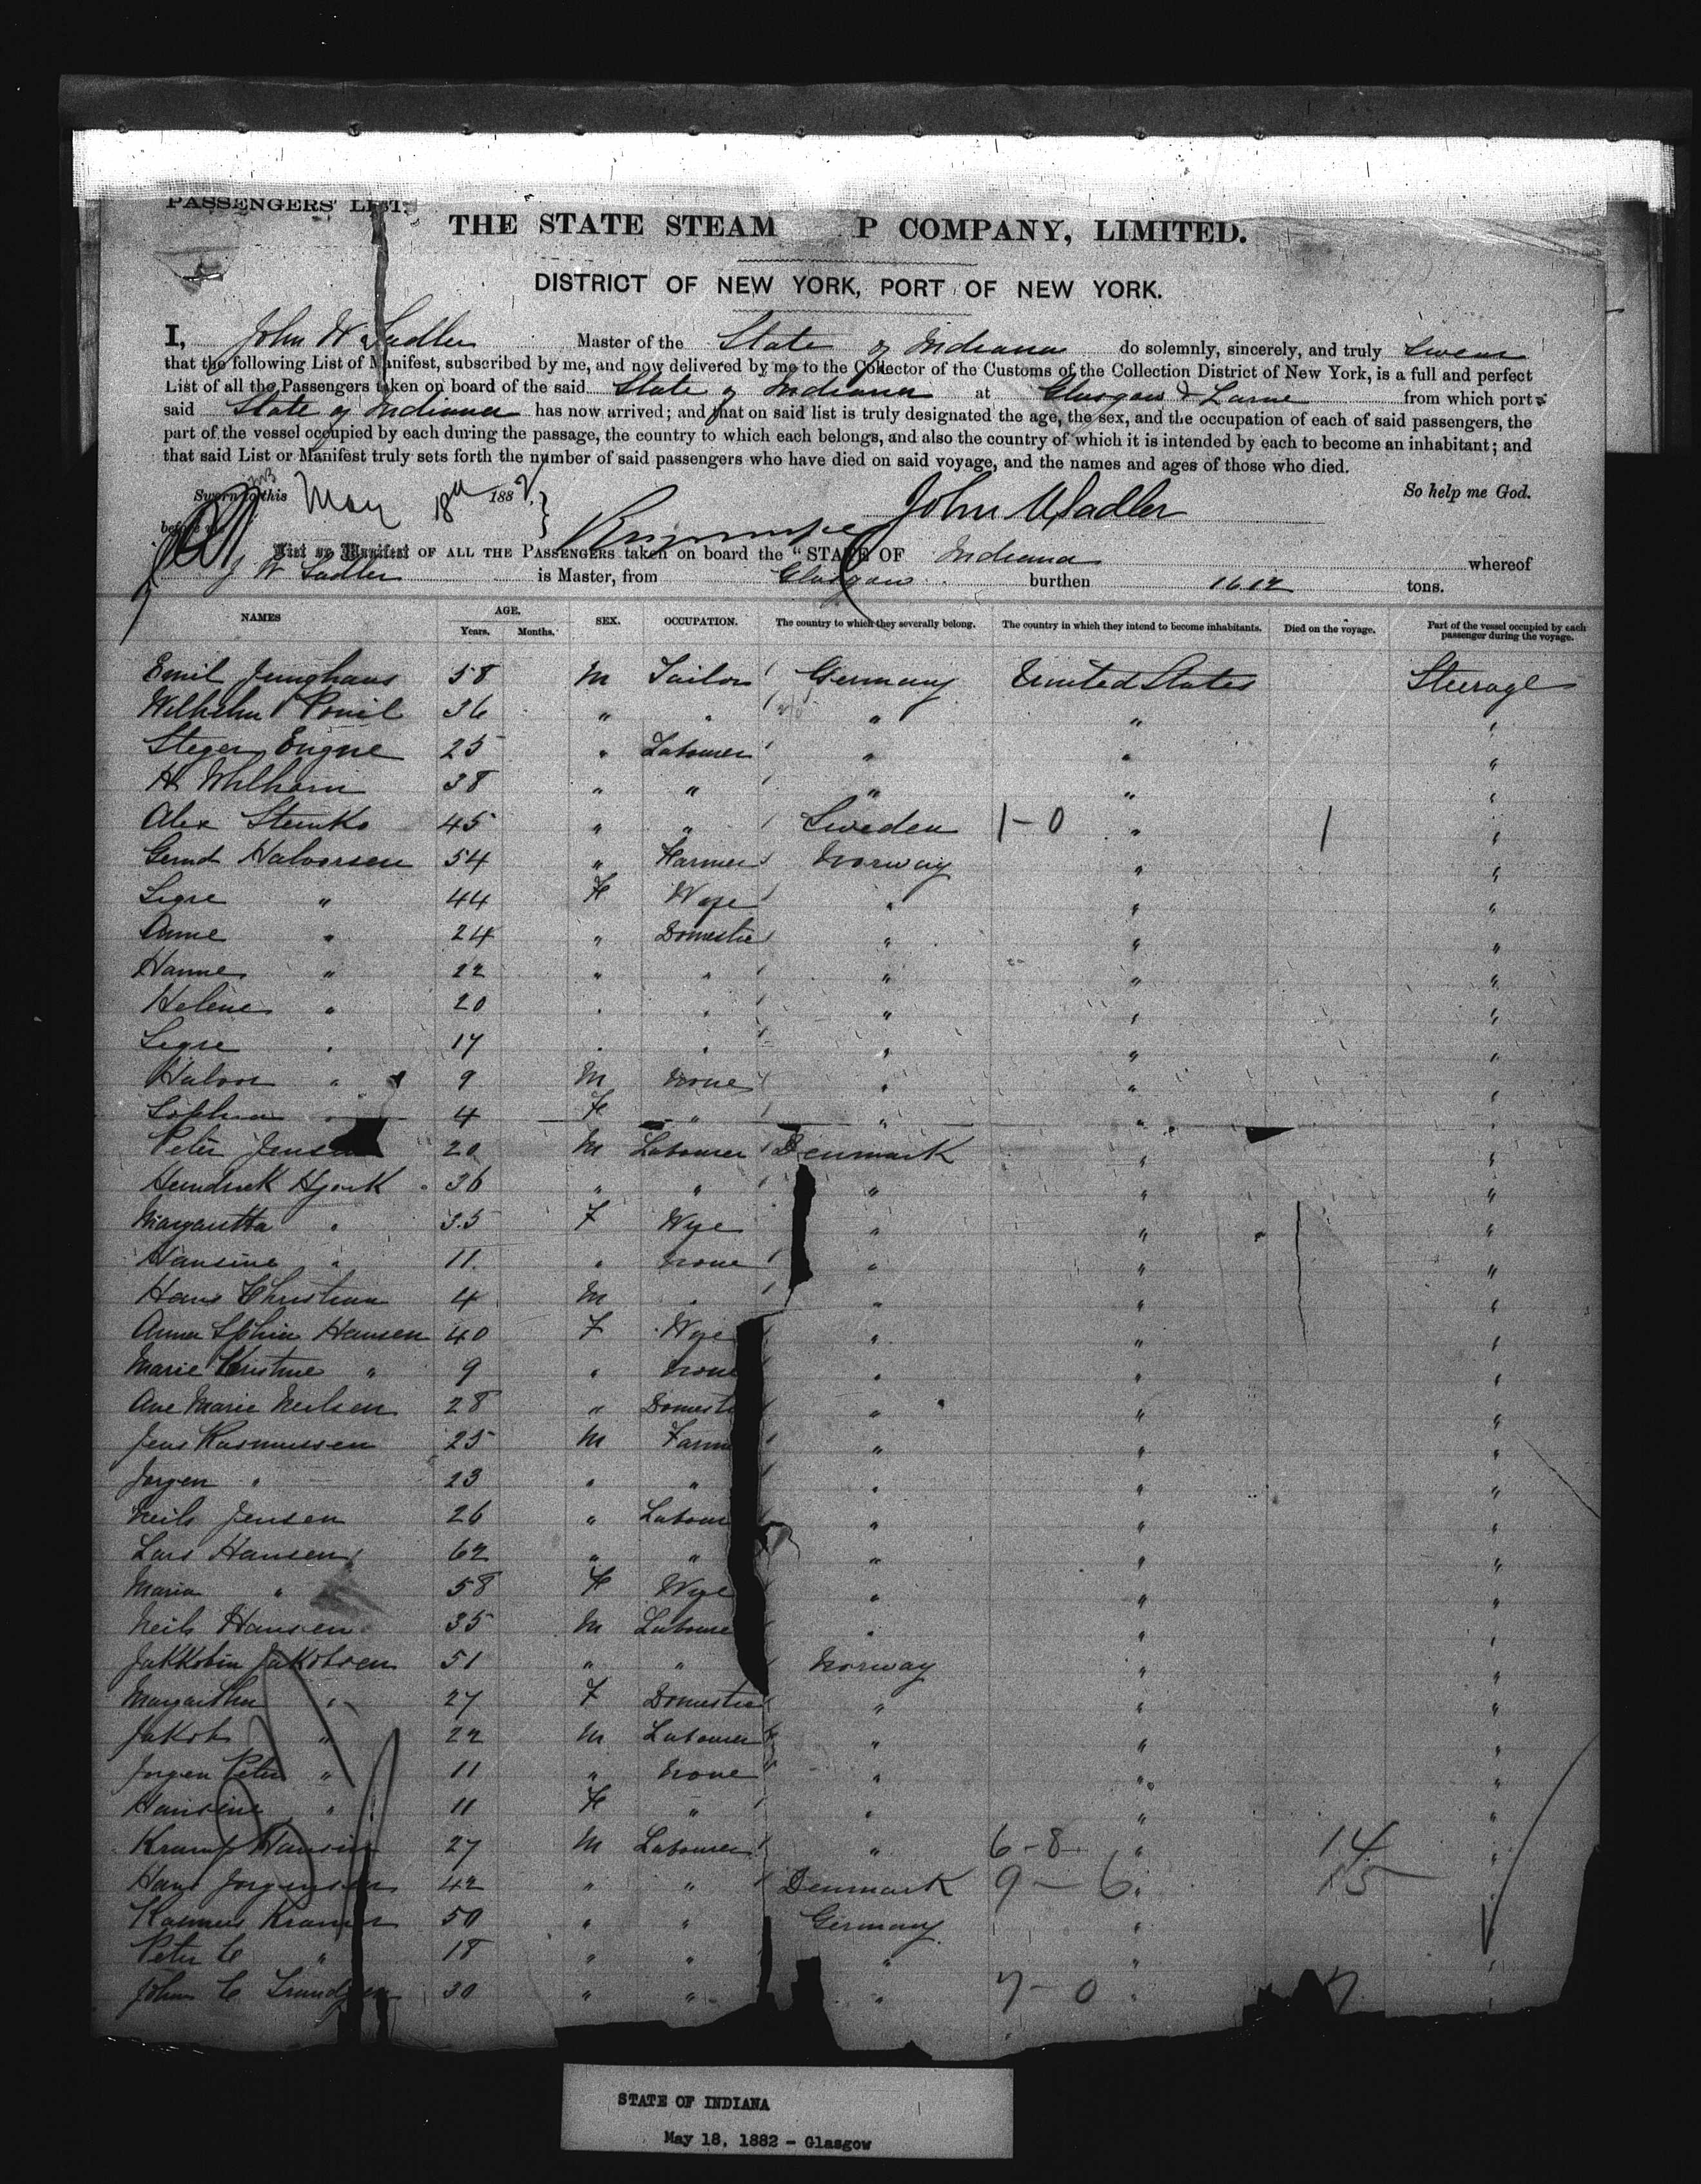 PASSENGERS' LIST.
THE STATE STEAM P COMPANY, LIMITED.
DISTRICT OF NEW YORK, PORT OF NEW YORK.
I, John W Sadler Master of the State of Indiana do solemnly, sincerely, and truly swear
that the following List of Manifest, subscribed by me, and now delivered by me to the Collector of the Customs of the Collection District of New York, is a full and perfect
List of all the Passengers taken on board of the said State of Indiana at Glasgow & Larne from which ports
said State of Indiana has now arrived; and that on said list is truly designated the age, the sex, and the occupation of each of said passengers, the
part of the vessel occupied by each during the passage, the country to which each belongs, and also the country of which it is intended by each to become an inhabitant; and
that said List or Manifest truly sets forth the number of said passengers who have died on said voyage, and the names and ages of those who died.
Sworn to this May 18th 1882. So help me God.
before me John W Sadler
List or Manifest OF ALL THE PASSENGERS taken on board the "STATE OF Indiana whereof
J W Sadler is Master, from Glasgow burthen 1612 tons.
NAMES AGE. Years. Months. SEX. OCCUPATION. The country to which they severally belong. The country in which they intend to become inhabitants. Died on the voyage. Part of the vessel occupied by each passenger during the voyage.
Emil Junghans 58 M Tailor Germany United States Steerage
Wilhelm 36 " " " " "
Steger Eugne 25 " Labourer " " "
H. Wilhelm 38 " " " " "
Alex Steinko 45 " " Sweden 1-0 " 1 "
Halvorsen 54 " Farmer Norway " "
Sigre " 44 F Wife " " "
Anne " 24 " Domestic " " "
Hanne " 22 " " " " "
Helene " 20 " " " " "
Sigre " 17 " " " " "
Halvor " 9 M None " " "
Sophia " 4 F " " " "
Peter Jensen 20 M Labourer Denmark " "
Hendrick Hjork 36 " " " " "
Margaretta " 35 F Wife " " "
Hansine " 11 " None " " "
Hans Christian 4 M " " " "
Anna Sphia Hansen 40 F Wife " " "
Marie Kristine " 9 " None " " "
Ane Marie Neilsen 28 " Domesti " " "
Jens Rasmussen 25 M Farm " " "
Jorgen " 23 " " " " "
Neils Jensen 26 " Labour " " "
Lars Hansen 62 " " " " "
Maria " 58 F Wife " " "
Neils Hansen 35 M Laboure " " "
Jakkobin Jakobsen 51 " " Norway " "
Margaretha " 27 F Domestic " " "
Jakob " 22 M Labourer " " "
Jorgen Peter " 11 " None " " "
Hansine " 11 F " " " "
Hansin 27 M Labourer " 6-8 " 14 "
Hans Jorgensen 42 " " Denmark 9-6 " 15
Rasmus Kramer 50 " " Germany " "
Peter C " 18 " " " " "
John C 30 " " " 7-0 " 7 "
STATE OF INDIANA
May 18, 1882 - Glasgow